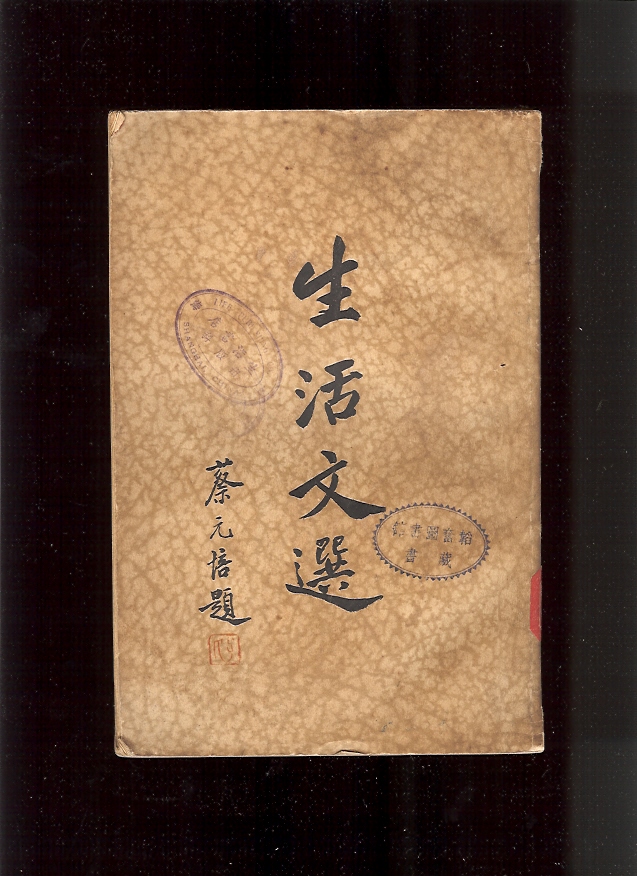 生活文選
蔡元培題
韜奮圖書館
藏書